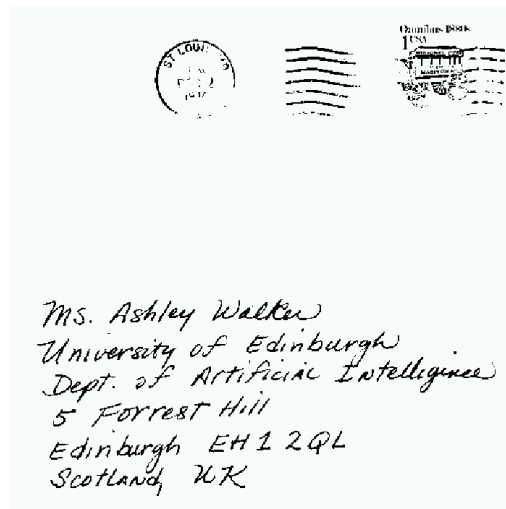 Omnibus 1880s
1 USA
ST LOUIS MO
Ms. Ashley Walker
University of Edinburgh
Dept. of Artificial Intelligence
5 Forrest Hill
Edinburgh EH1 2QL
Scotland, UK